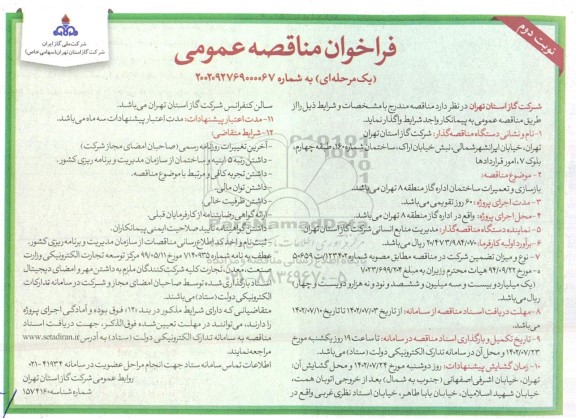 نوبت دوم
شرکت ملی گاز ایران
شرکت گاز استان تهران (سهامی خاص)
فراخوان مناقصه عمومی
(یک مرحله‌ای) به شماره ۲۰۰۲۰۹۲۷۶۹۰۰۰۰۶۷
شرکت گاز استان تهران در نظر دارد مناقصه مندرج با مشخصات و شرایط ذیل را از
طریق مناقصه عمومی به پیمانکار واجد شرایط واگذار نماید.
۱- نام و نشانی دستگاه مناقصه‌گذار: شرکت گاز استان تهران
تهران، خیابان ایرانشهر شمالی، نبش خیابان اراک، ساختمان شماره ۱۶۰، طبقه چهارم،
بلوک ۷، امور قراردادها
۲- موضوع مناقصه:
بازسازی و تعمیرات ساختمان اداره گاز منطقه ۸ تهران می‌باشد.
۳- مدت اجرای پروژه: ۶۰ روز تقویمی می‌باشد.
۴- محل اجرای پروژه: واقع در اداره گاز منطقه ۸ تهران می‌باشد.
۵- نماینده دستگاه مناقصه‌گذار: مدیریت منابع انسانی شرکت گاز استان تهران
۶- برآورد اولیه کارفرما: ریال می‌باشد.
۷- نوع و میزان تضمین شرکت در مناقصه مطابق مصوبه شماره ۱۲۳۴۰۲/ت ۵۰۶۵۹
ه- مورخ ۹۴/۰۹/۲۲ هیات محترم وزیران به مبلغ
(یک میلیارد و بیست و سه میلیون و ششصد و نود و نه هزار و دویست و چهار)
ریال می‌باشد.
۸- مهلت دریافت اسناد مناقصه از سامانه: از تاریخ ۱۴۰۲/۰۷/۰۳ تا تاریخ ۱۴۰۲/۰۷/۱۰
می‌باشد.
۹- تاریخ تکمیل و بارگذاری اسناد مناقصه در سامانه: تا ساعت ۱۹ روز یکشنبه مورخ
۱۴۰۲/۰۷/۲۳ و محل آن در سامانه تدارک الکترونیکی دولت (ستاد) می‌باشد.
۱۰- زمان گشایش پیشنهادات: روز دوشنبه مورخ ۱۴۰۲/۰۷/۲۴ و محل گشایش آن:
تهران، خیابان اشرفی اصفهانی (جنوب به شمال) بعد از خروجی اتوبان همت،
خیابان شهید اسلامیان، خیابان باباطاهر، خیابان استاد نظری غربی واقع در
سالن کنفرانس شرکت گاز استان تهران می‌باشد.
۱۱- مدت اعتبار پیشنهادات: مدت اعتبار پیشنهادات سه ماه می‌باشد.
۱۲- شرایط متقاضی:
- آخرین تغییرات روزنامه رسمی (صاحبان امضای مجاز شرکت)
- داشتن رتبه ۵ ابنیه و ساختمان از سازمان مدیریت و برنامه ریزی کشور.
- داشتن تجربه کافی و مرتبط با موضوع مناقصه.
- داشتن توان مالی.
- داشتن ظرفیت خالی
- ارائه گواهی رضایتنامه از کارفرمایان قبلی
- داشتن گواهینامه تایید صلاحیت ایمنی پیمانکاران.
- ثبت نام و اخذ کد اطلاع رسانی مناقصات از سازمان مدیریت و برنامه ریزی کشور.
عطف به نامه شماره ۷۱۴۰۹۳۵ مورخ ۹۹/۰۵/۱۱ مرکز توسعه تجارت الکترونیکی وزارت
صنعت، معدن، تجارت کلیه شرکت‌کنندگان ملزم به داشتن مهر و امضای دیجیتال
اسناد بارگذاری شده توسط صاحبان امضای مجاز و شرکت در سامانه تدارکات
الکترونیکی دولت (ستاد) می‌باشند.
متقاضیانی که دارای شرایط مذکور در بند «۱۲» فوق بوده و آمادگی اجرای پروژه
را دارند، می‌توانند در مهلت تعیین شده فوق الذکر، جهت دریافت اسناد
مناقصه به سامانه تدارک الکترونیکی دولت (ستاد) به آدرس www.setadiran.ir
مراجعه نمایند.
اطلاعات تماس سامانه ستاد جهت انجام مراحل عضویت در سامانه ۴۱۹۳۴-۰۲۱
روابط عمومی شرکت گاز استان تهران
شماره شناسه: ۱۵۷۴۱۶۰
ParsNamadData
۰۲۱-۸۸۳۴۹۶۷۰-۵